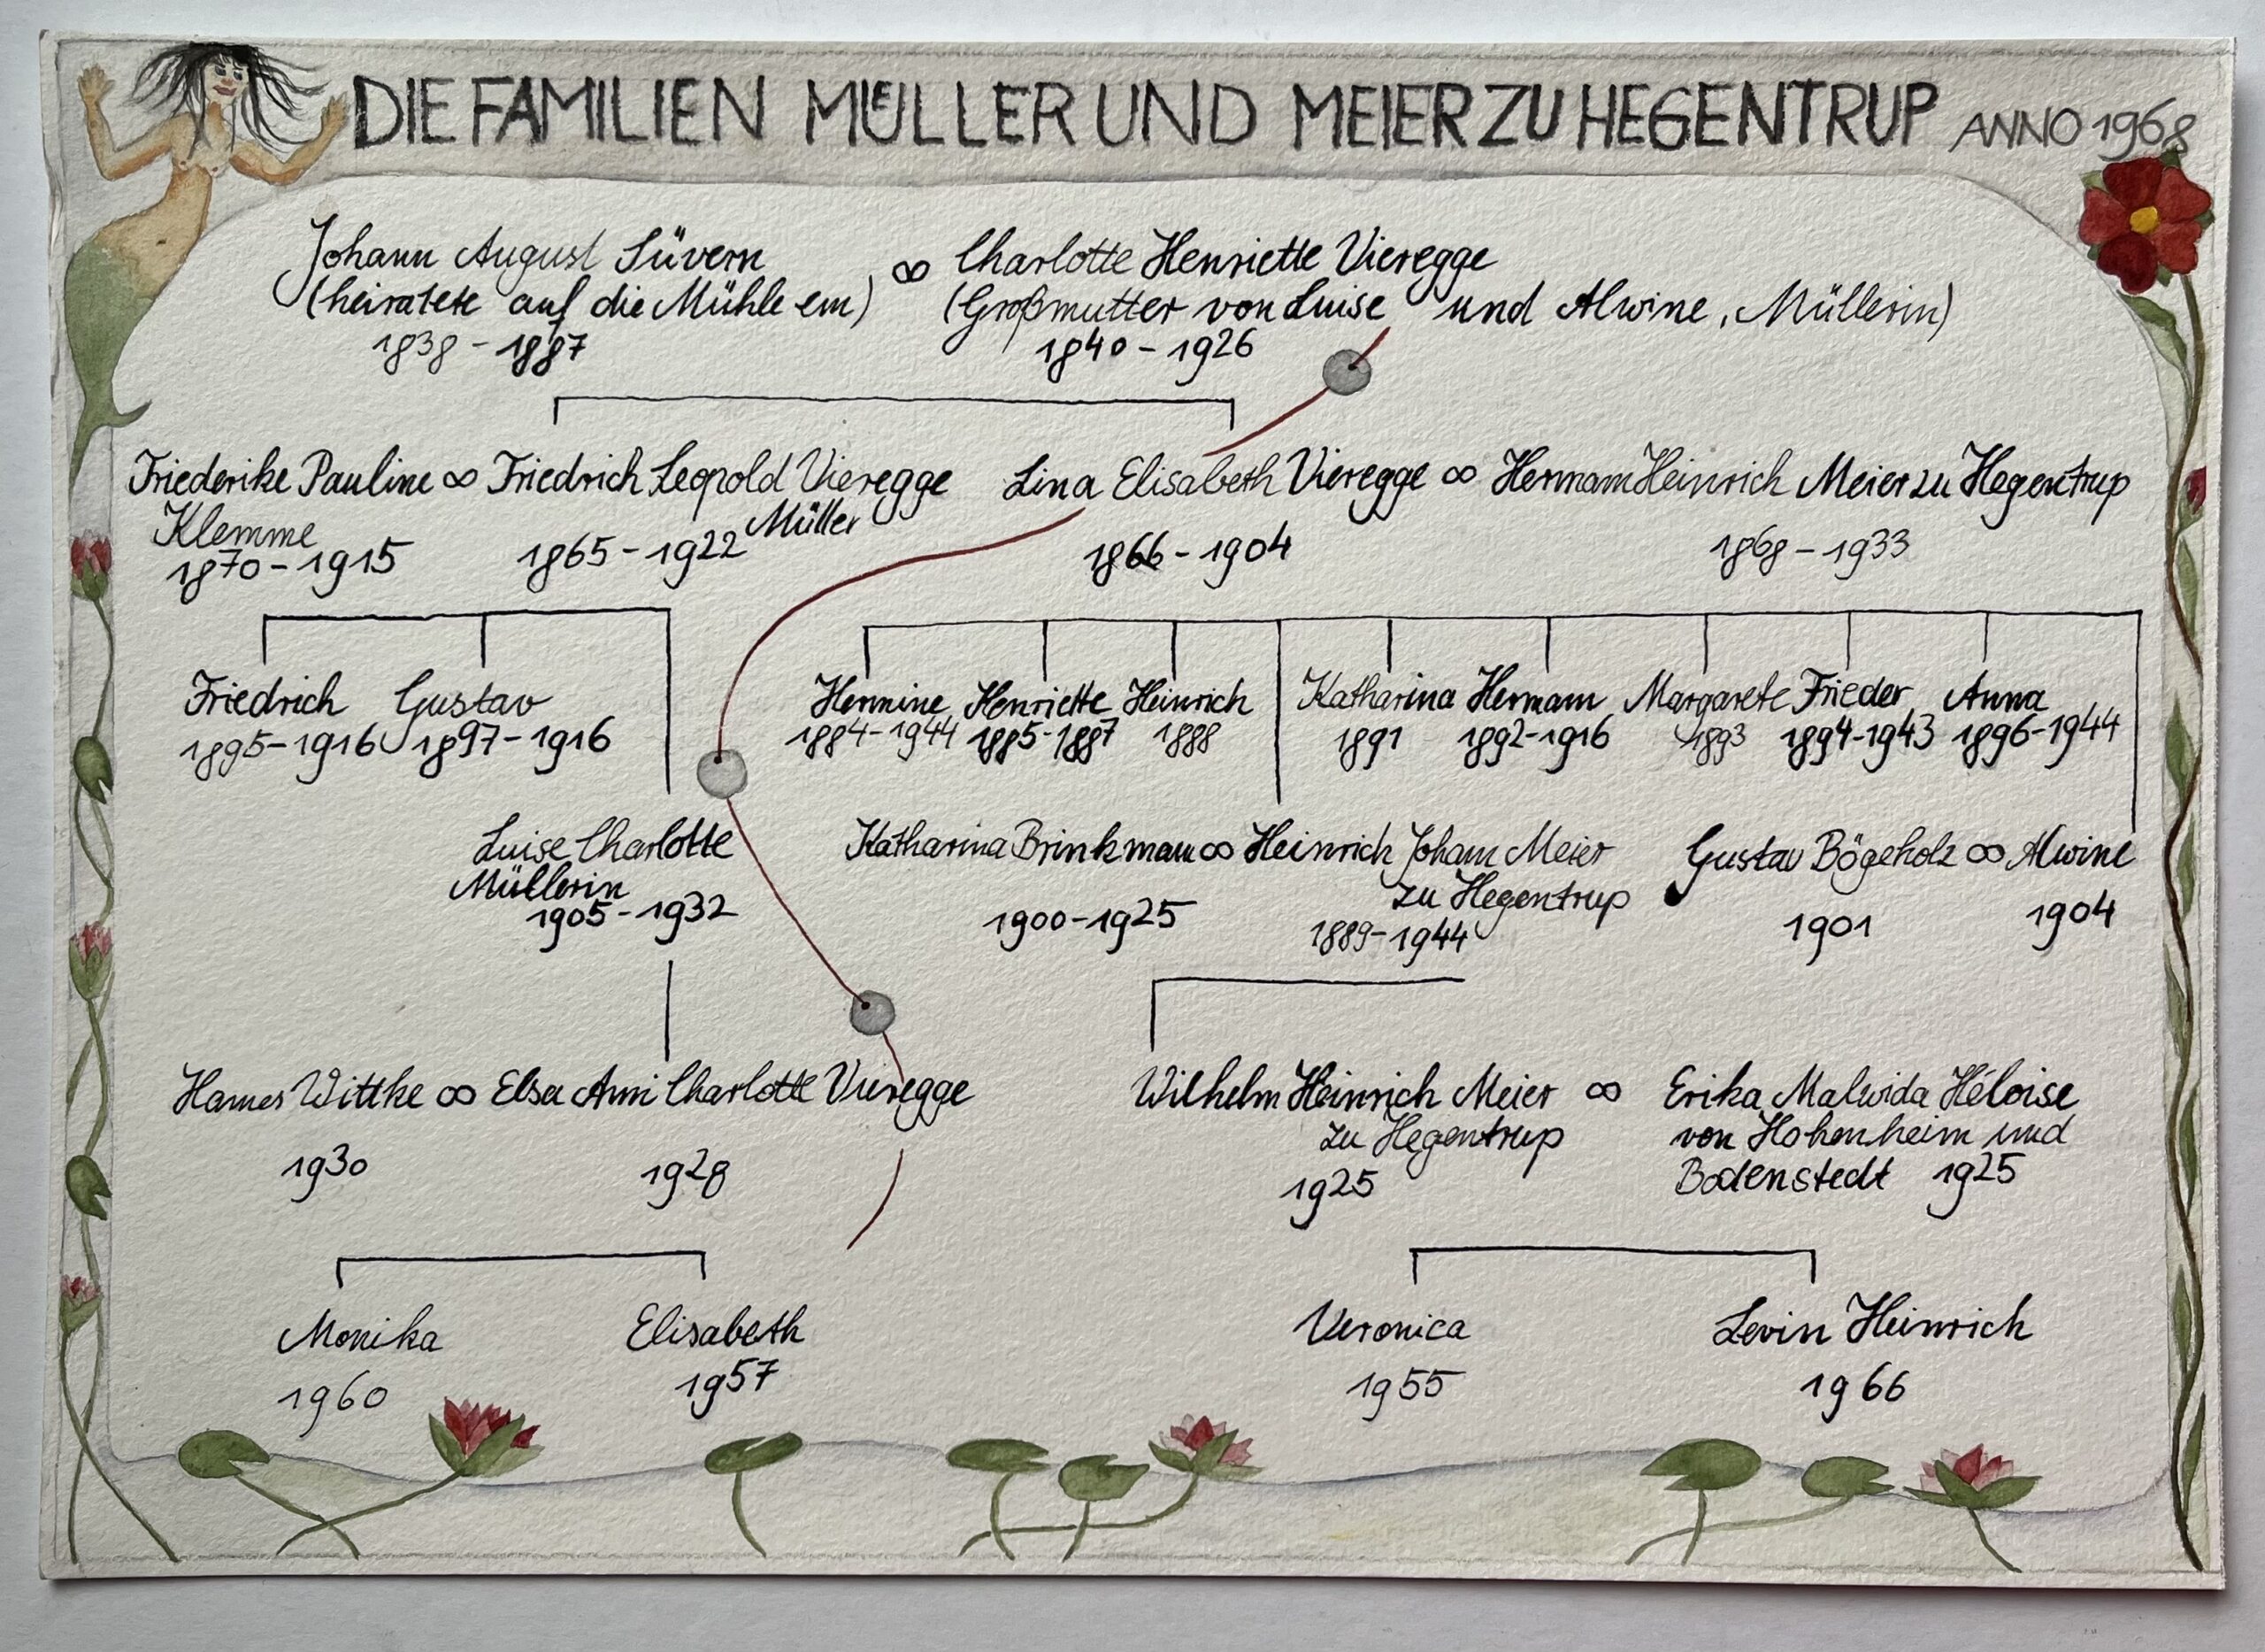 DIE FAMILIEN MÜLLER UND MEIER ZU HEGENTRUP ANNO 1968
Johann August Süvern ∞ Charlotte Henriette Vieregge
(heiratete auf die Mühle ein) (Großmutter von Luise und Alwine, Müllerin)
1838 - 1887 1840 - 1926
Friederike Pauline ∞ Friedrich Leopold Vieregge Lina Elisabeth Vieregge ∞ Hermann Heinrich Meier zu Hegentrup
Klemme Müller
1870 - 1915 1865 - 1922 1866 - 1904 1868 - 1933
Friedrich Gustav Hermine Henriette Heinrich Katharina Hermann Margarete Frieder Anna
1895 - 1916 1897 - 1916 1884 - 1944 1885 - 1887 1888 1891 1892 - 1916 1893 1894 - 1943 1896 - 1944
Luise Charlotte Katharina Brinkmann ∞ Heinrich Johann Meier Gustav Bögeholz ∞ Alwine
Müllerin zu Hegentrup
1905 - 1932 1900 - 1925 1889 - 1944 1901 1904
Hannes Wittke ∞ Elsa Anni Charlotte Vieregge Wilhelm Heinrich Meier ∞ Erika Malwida Héloise
zu Hegentrup von Hohenheim und
1930 1928 1925 Bodenstedt 1925
Monika Elisabeth Veronica Levin Heinrich
1960 1957 1955 1966